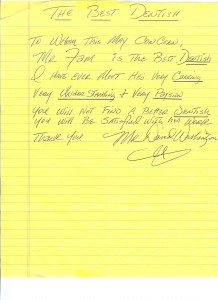 The Best Dentish
To Whom This May Concern,
Mr. Fam is the Best Dentish
I Have ever Meet His very Carring
Very Under Standing & Very Passion
You will Not Find A Better Dentish
You will Be Satisfied with his work
Thank you Mr. David Washington